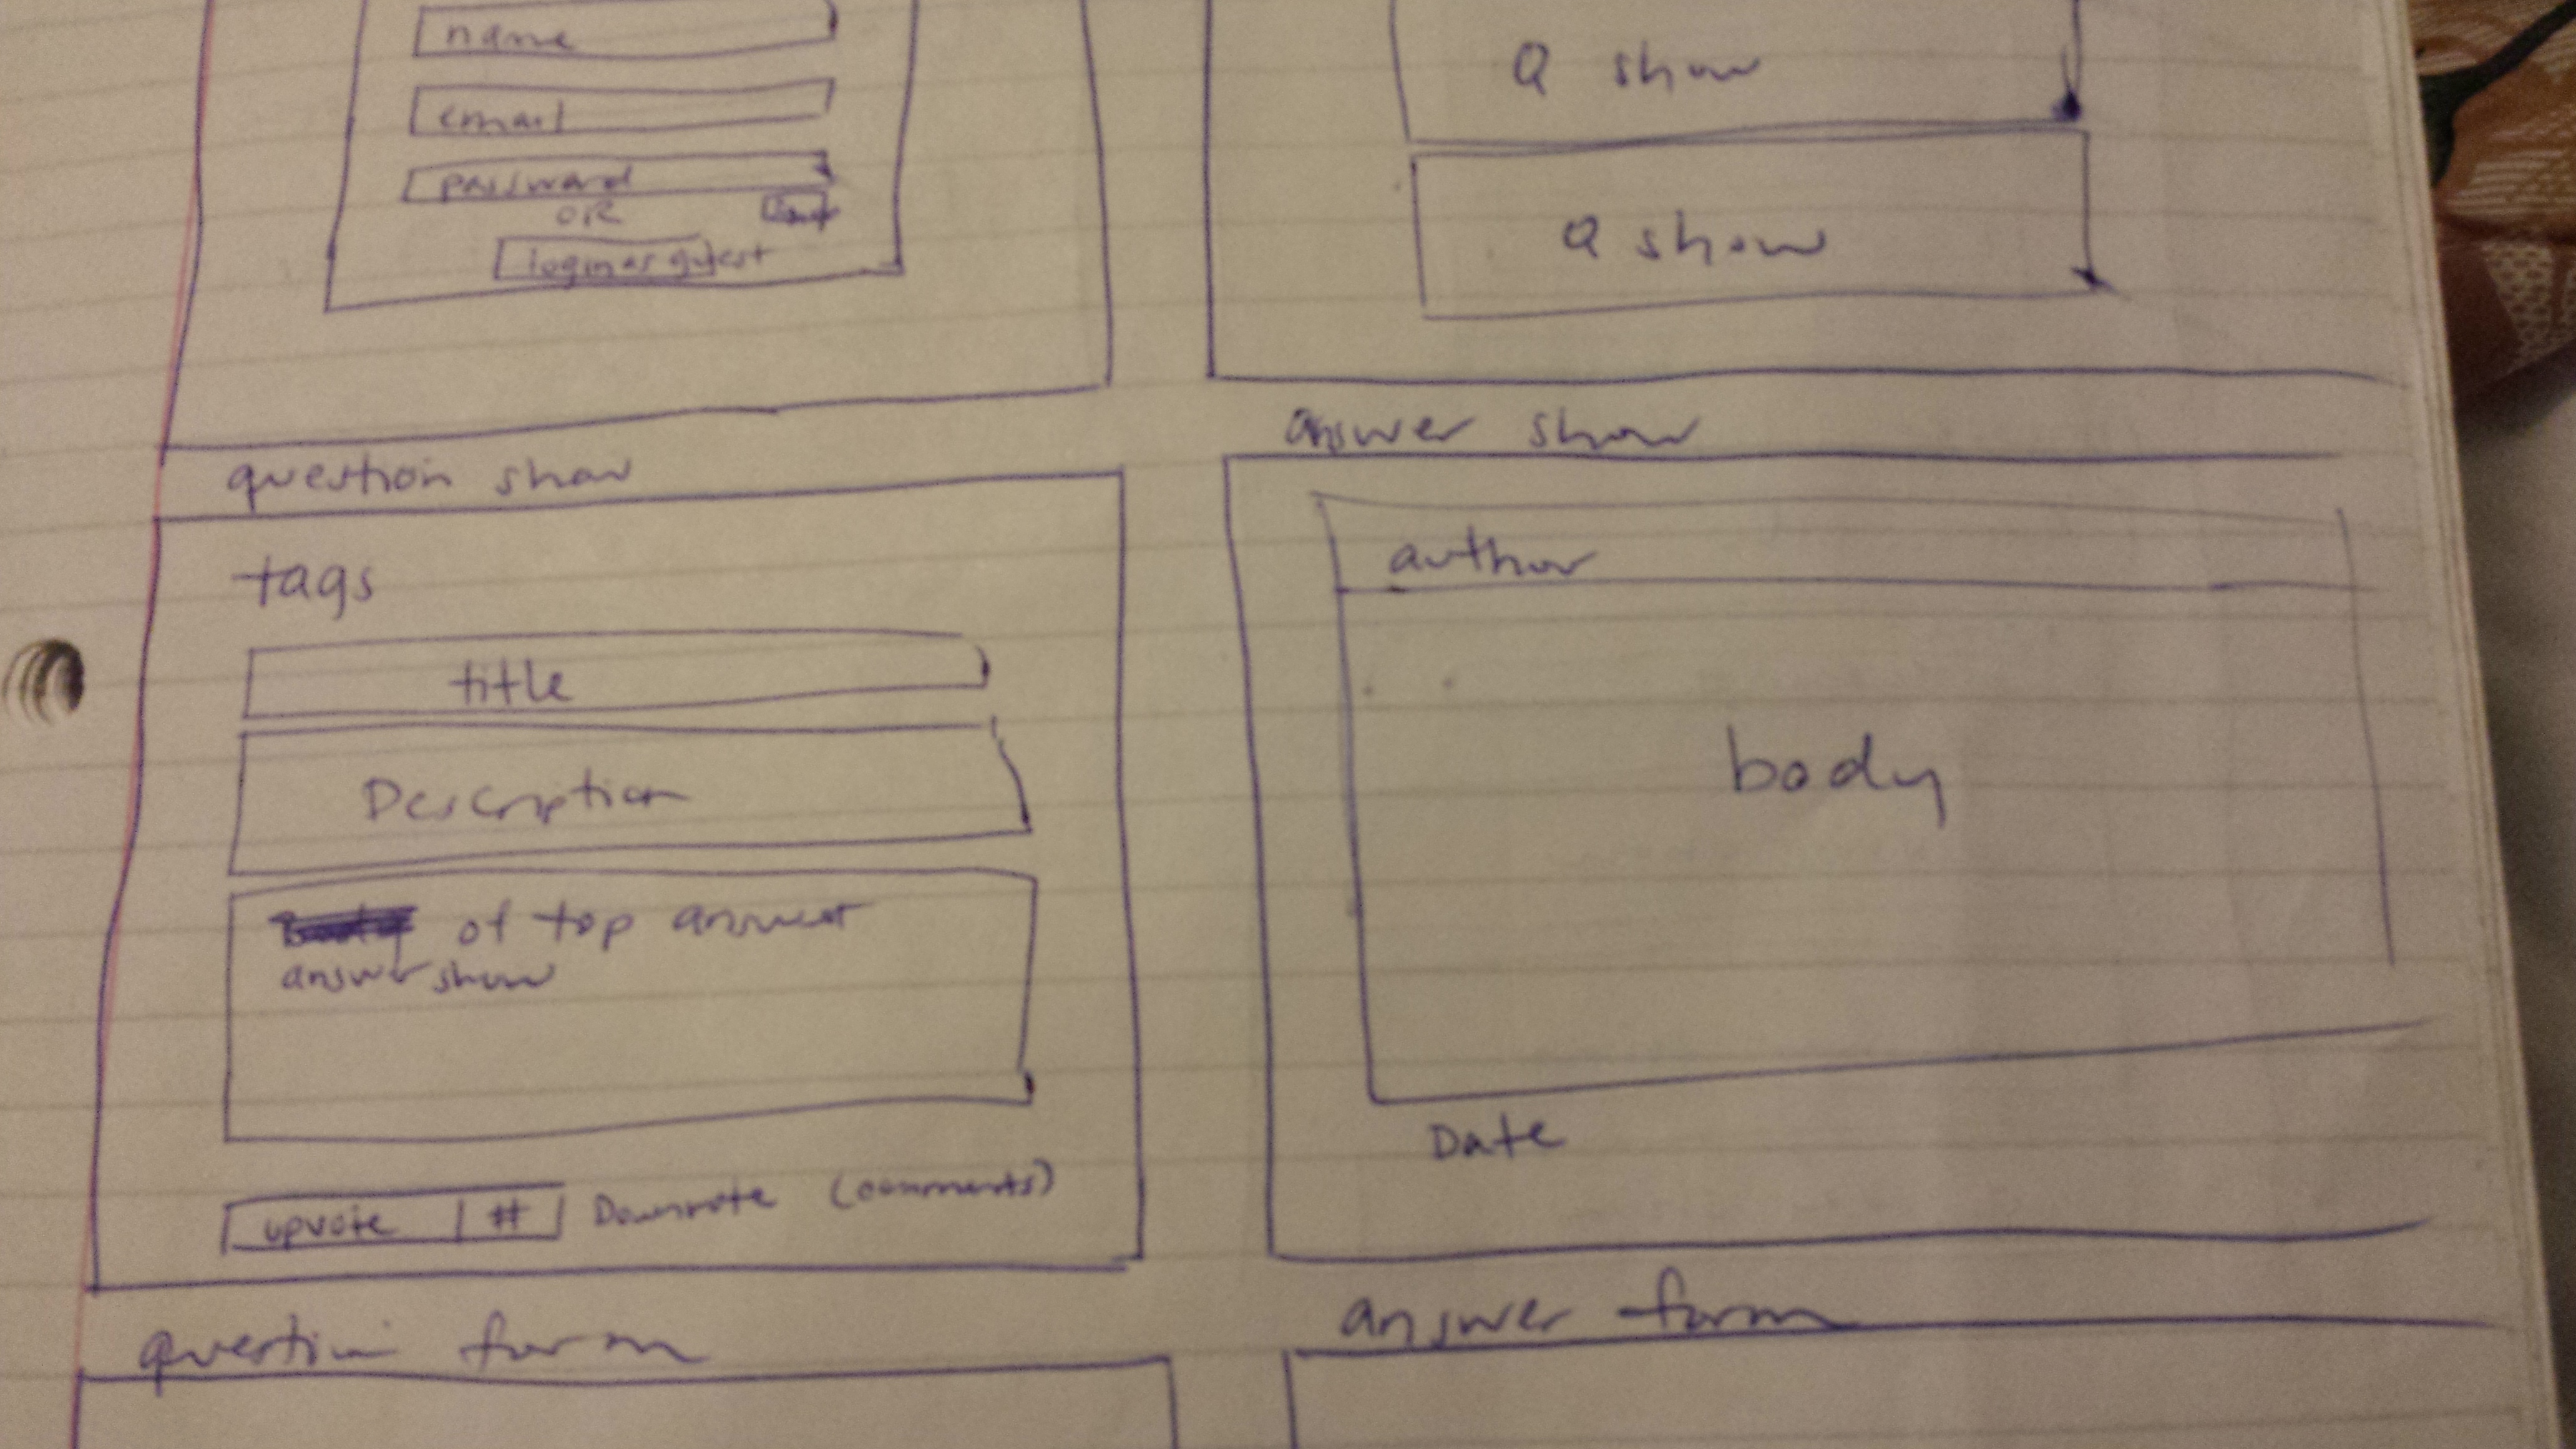 name
email
password
OR
login as guest
Q show
Q show
question show
tags
title
Description
of top answer
answer show
upvote # Downvote (comments)
answer show
author
body
Date
question form
answer form